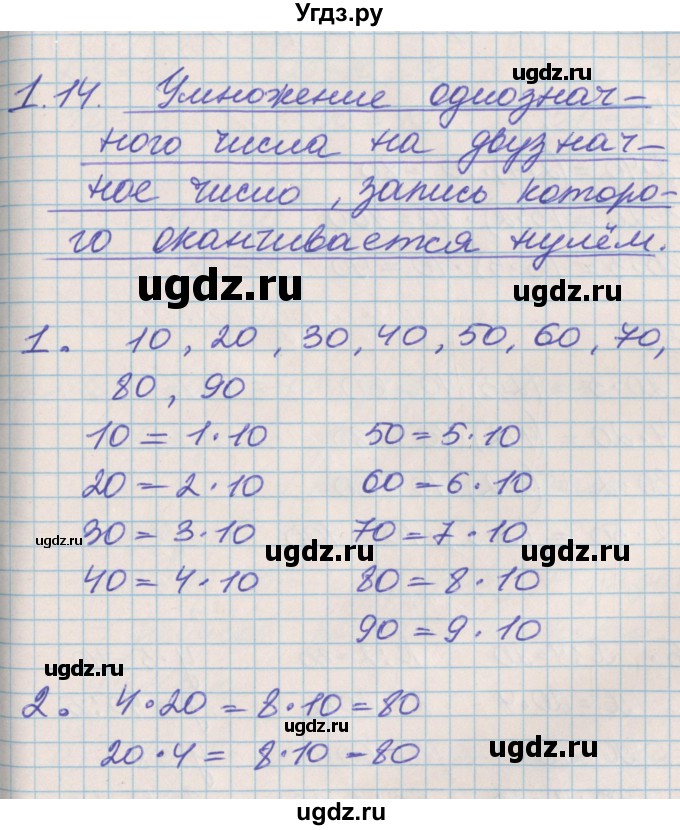 Угдз.ру
ugdz.ru
1.14. Умножение однознач-
ного числа на двузнач-
ное число, запись которо-
го оканчивается нулём.
ugdz.ru
ugdz.ru
1. 10, 20, 30, 40, 50, 60, 70,
80, 90
10 = 1·10 50 = 5·10
20 = 2·10 60 = 6·10
ugdz.ru
30 = 3·10 70 = 7·10
ugdz.ru
ugdz.ru
40 = 4·10 80 = 8·10
90 = 9·10
ugdz.ru
2. 4·20 = 8·10 = 80
ugdz.ru
20·4 = 8·10 = 80
ugdz.ru
ugdz.ru